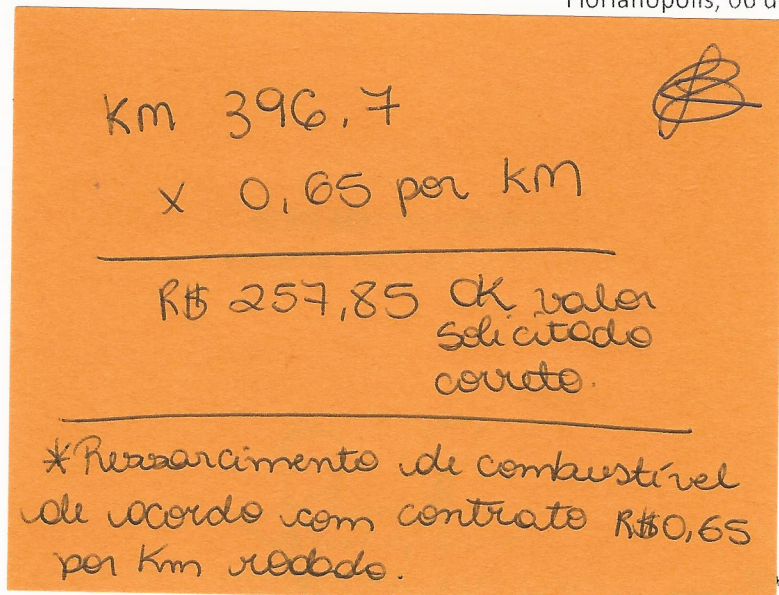 Florianópolis, 06 d
Km 396,7
x 0,65 por KM
R$ 257,85 OK valor
solicitado
correto.
*Ressarcimento de combustível
de acordo com contrato R$0,65
por Km rodado.